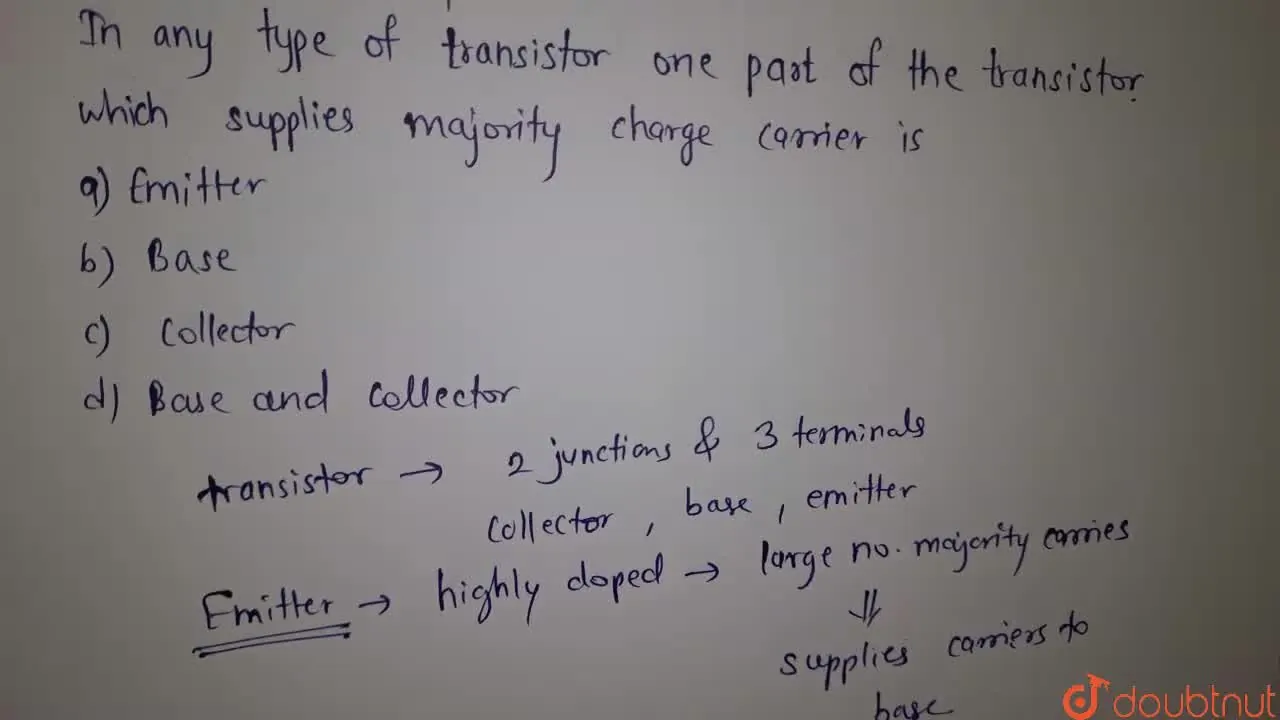 In any type of transistor one part of the transistor.
which supplies majority charge carrier is
a) Emitter
b) Base
c) collector
d) Base and collector
transistor → 2 junctions & 3 terminals
collector, base, emitter
Emitter → highly doped → large no. majority carries
⇓
supplies carriers to
base
doubtnut